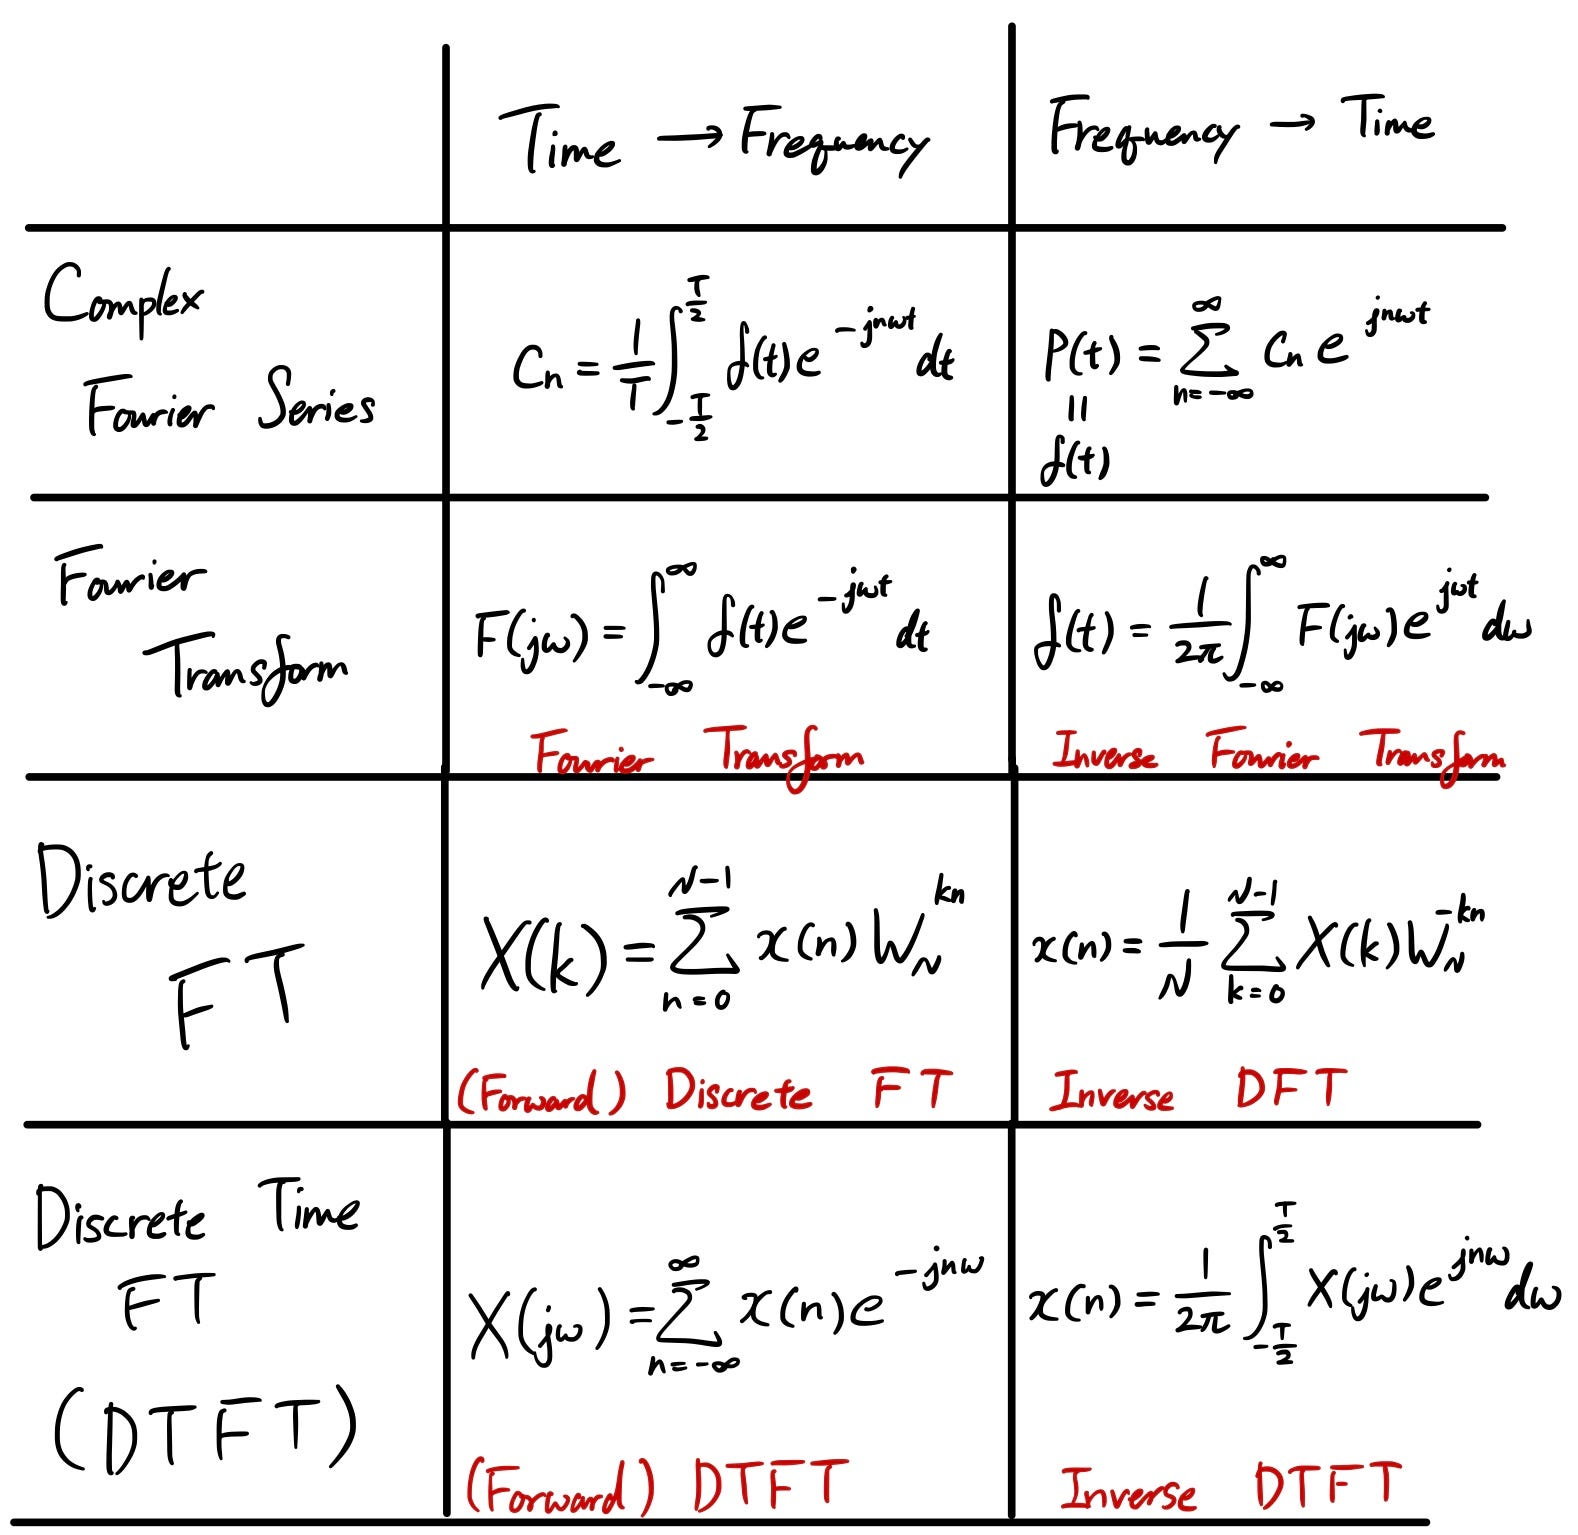 Time → Frequency
Frequency → Time
Complex
Fourier Series
Cn = 1/T ∫_{-T/2}^{T/2} f(t) e^{-jnωt} dt
P(t) = Σ_{n=-∞}^{∞} Cn e^{jnωt}
=
f(t)
Fourier
Transform
F(jω) = ∫_{-∞}^{∞} f(t) e^{-jωt} dt
Fourier Transform
f(t) = 1/2π ∫_{-∞}^{∞} F(jω) e^{jωt} dω
Inverse Fourier Transform
Discrete
FT
X(k) = Σ_{n=0}^{N-1} x(n) W_N^{kn}
(Forward) Discrete FT
x(n) = 1/N Σ_{k=0}^{N-1} X(k) W_N^{-kn}
Inverse DFT
Discrete Time
FT
(DTFT)
X(jω) = Σ_{n=-∞}^{∞} x(n) e^{-jnω}
(Forward) DTFT
x(n) = 1/2π ∫_{-T/2}^{T/2} X(jω) e^{jnω} dω
Inverse DTFT